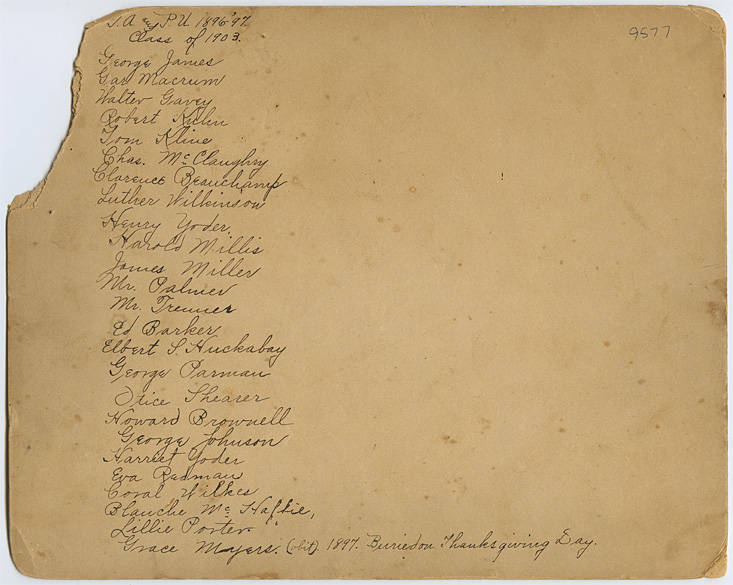 I.A. & P.U. 1896-'97
Class of 1903.
9577
George James
Gar Macrum
Walter Gavey
Robert Kuhn
Tom Kline
Chas. McClaughry
Clarence Beauchamp
Luther Wilkinson
Henry Yoder.
Harold Millis
James Miller
Mr. Palmer
Mr. Tremer
Ed Barker
Elbert S. Huckabay
George Parman
Otice Shearer
Howard Brownell
George Johnson
Harriet Yoder
Eva Redman
Coral Wilkes
Blanche Mc Haffie,
Lillie Porter
Grace Myers. (obit). 1897. Buried on Thanksgiving Day.